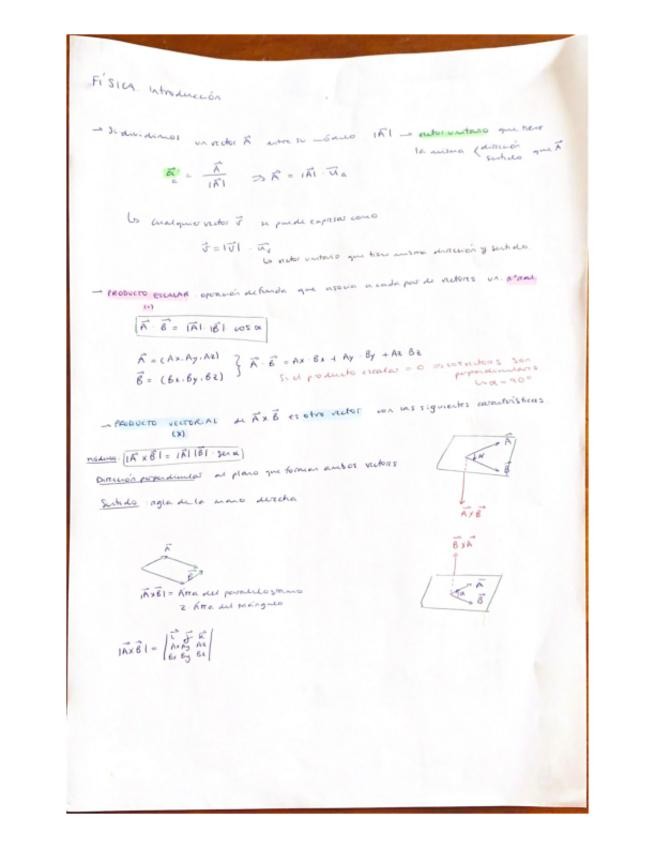 FÍSICA Introducción
→ Si dividimos un vector A⃗ entre su módulo |A⃗| → vector unitario que tiene
la misma { dirección
sentido que A⃗
u⃗a = A⃗ / |A⃗| ⇒ A⃗ = |A⃗| · u⃗a
↳ Cualquier vector v⃗ se puede expresar como
v⃗ = |v⃗| · u⃗v
↳ vector unitario que tiene misma dirección y sentido
→ PRODUCTO ESCALAR operación definida que asocia a cada par de vectores un nº real
(·)
A⃗ · B⃗ = |A⃗| · |B⃗| cos α
A⃗ = (Ax, Ay, Az)
B⃗ = (Bx, By, Bz) } A⃗ · B⃗ = Ax · Bx + Ay · By + Az Bz
Si el producto escalar = 0 vectores son
perpendiculares
↳ α = 90º
→ PRODUCTO VECTORIAL de A⃗ x B⃗ es otro vector con las siguientes características
(x)
módulo: |A⃗ x B⃗| = |A⃗| |B⃗| · sen α
Dirección perpendicular al plano que forman ambos vectores
Sentido: regla de la mano derecha
A⃗
α
B⃗
A⃗ x B⃗
B⃗ x A⃗
A⃗
α
B⃗
A⃗
B⃗
|A⃗ x B⃗| = Área del paralelogramo
2 Área del triángulo
|A⃗ x B⃗| = | i⃗ j⃗ k⃗ |
| Ax Ay Az |
| Bx By Bz |